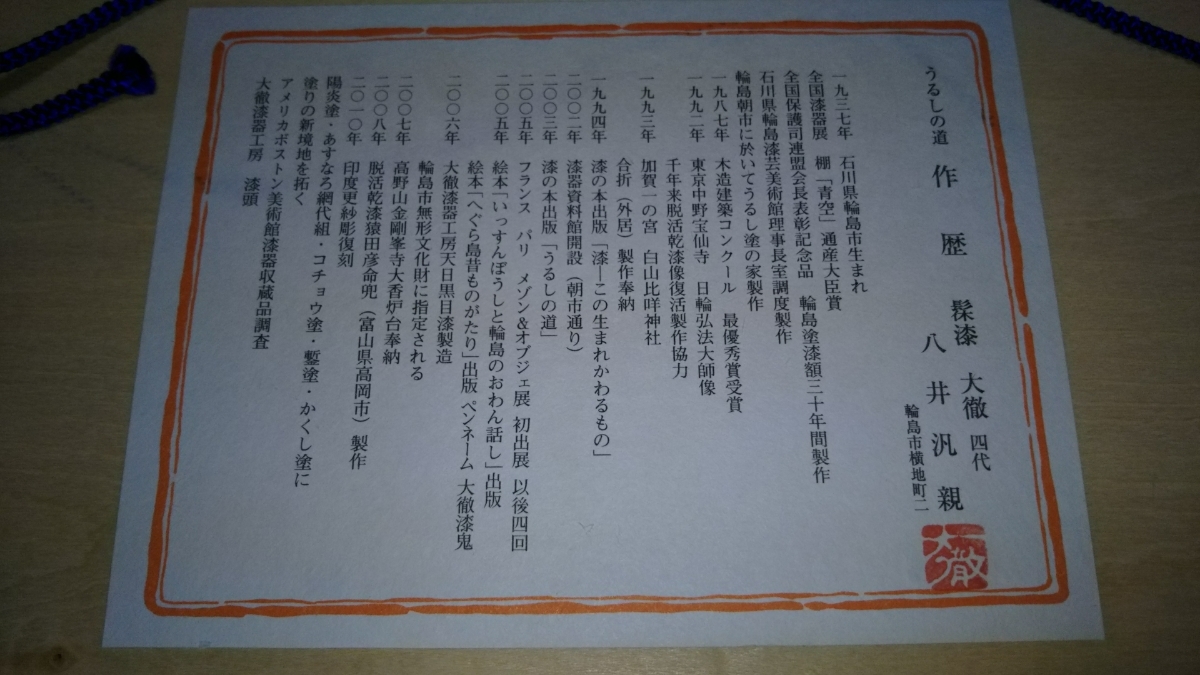 うるしの道 作歴 髹漆 大徹 四代
八井汎親
輪島市横地町二
大徹
一九三七年 石川県輪島市生まれ
全国漆器展 棚「青空」通産大臣賞
全国保護司連盟会長表彰記念品 輪島塗漆額三十年間製作
石川県輪島漆芸美術館理事長室調度製作
輪島朝市に於いてうるし塗の家製作
一九八七年 木造建築コンクール 最優秀賞受賞
一九九二年 東京中野宝仙寺 日輪弘法大師像
千年来脱活乾漆像復活製作協力
一九九三年 加賀一の宮 白山比咩神社
合折(外居)製作奉納
一九九四年 漆の本出版「漆―この生まれかわるもの」
二〇〇二年 漆器資料館開設(朝市通り)
二〇〇三年 漆の本出版「うるしの道」
二〇〇五年 フランス パリ メゾン&オブジェ展 初出展 以後四回
二〇〇五年 絵本「いっすんぼうしと輪島のおわん話し」出版
絵本「へぐら島昔ものがたり」出版 ペンネーム 大徹漆鬼
二〇〇六年 大徹漆器工房天日黒目漆製造
輪島市無形文化財に指定される
二〇〇七年 高野山金剛峯寺大香炉台奉納
二〇〇八年 脱活乾漆猿田彦命兜(富山県高岡市)製作
二〇一〇年 印度更紗彫復刻
陽炎塗・あすなろ網代組・コチョウ塗・菨塗・かくし塗に
塗りの新境地を拓く
アメリカボストン美術館漆器収蔵品調査
大徹漆器工房 漆頭